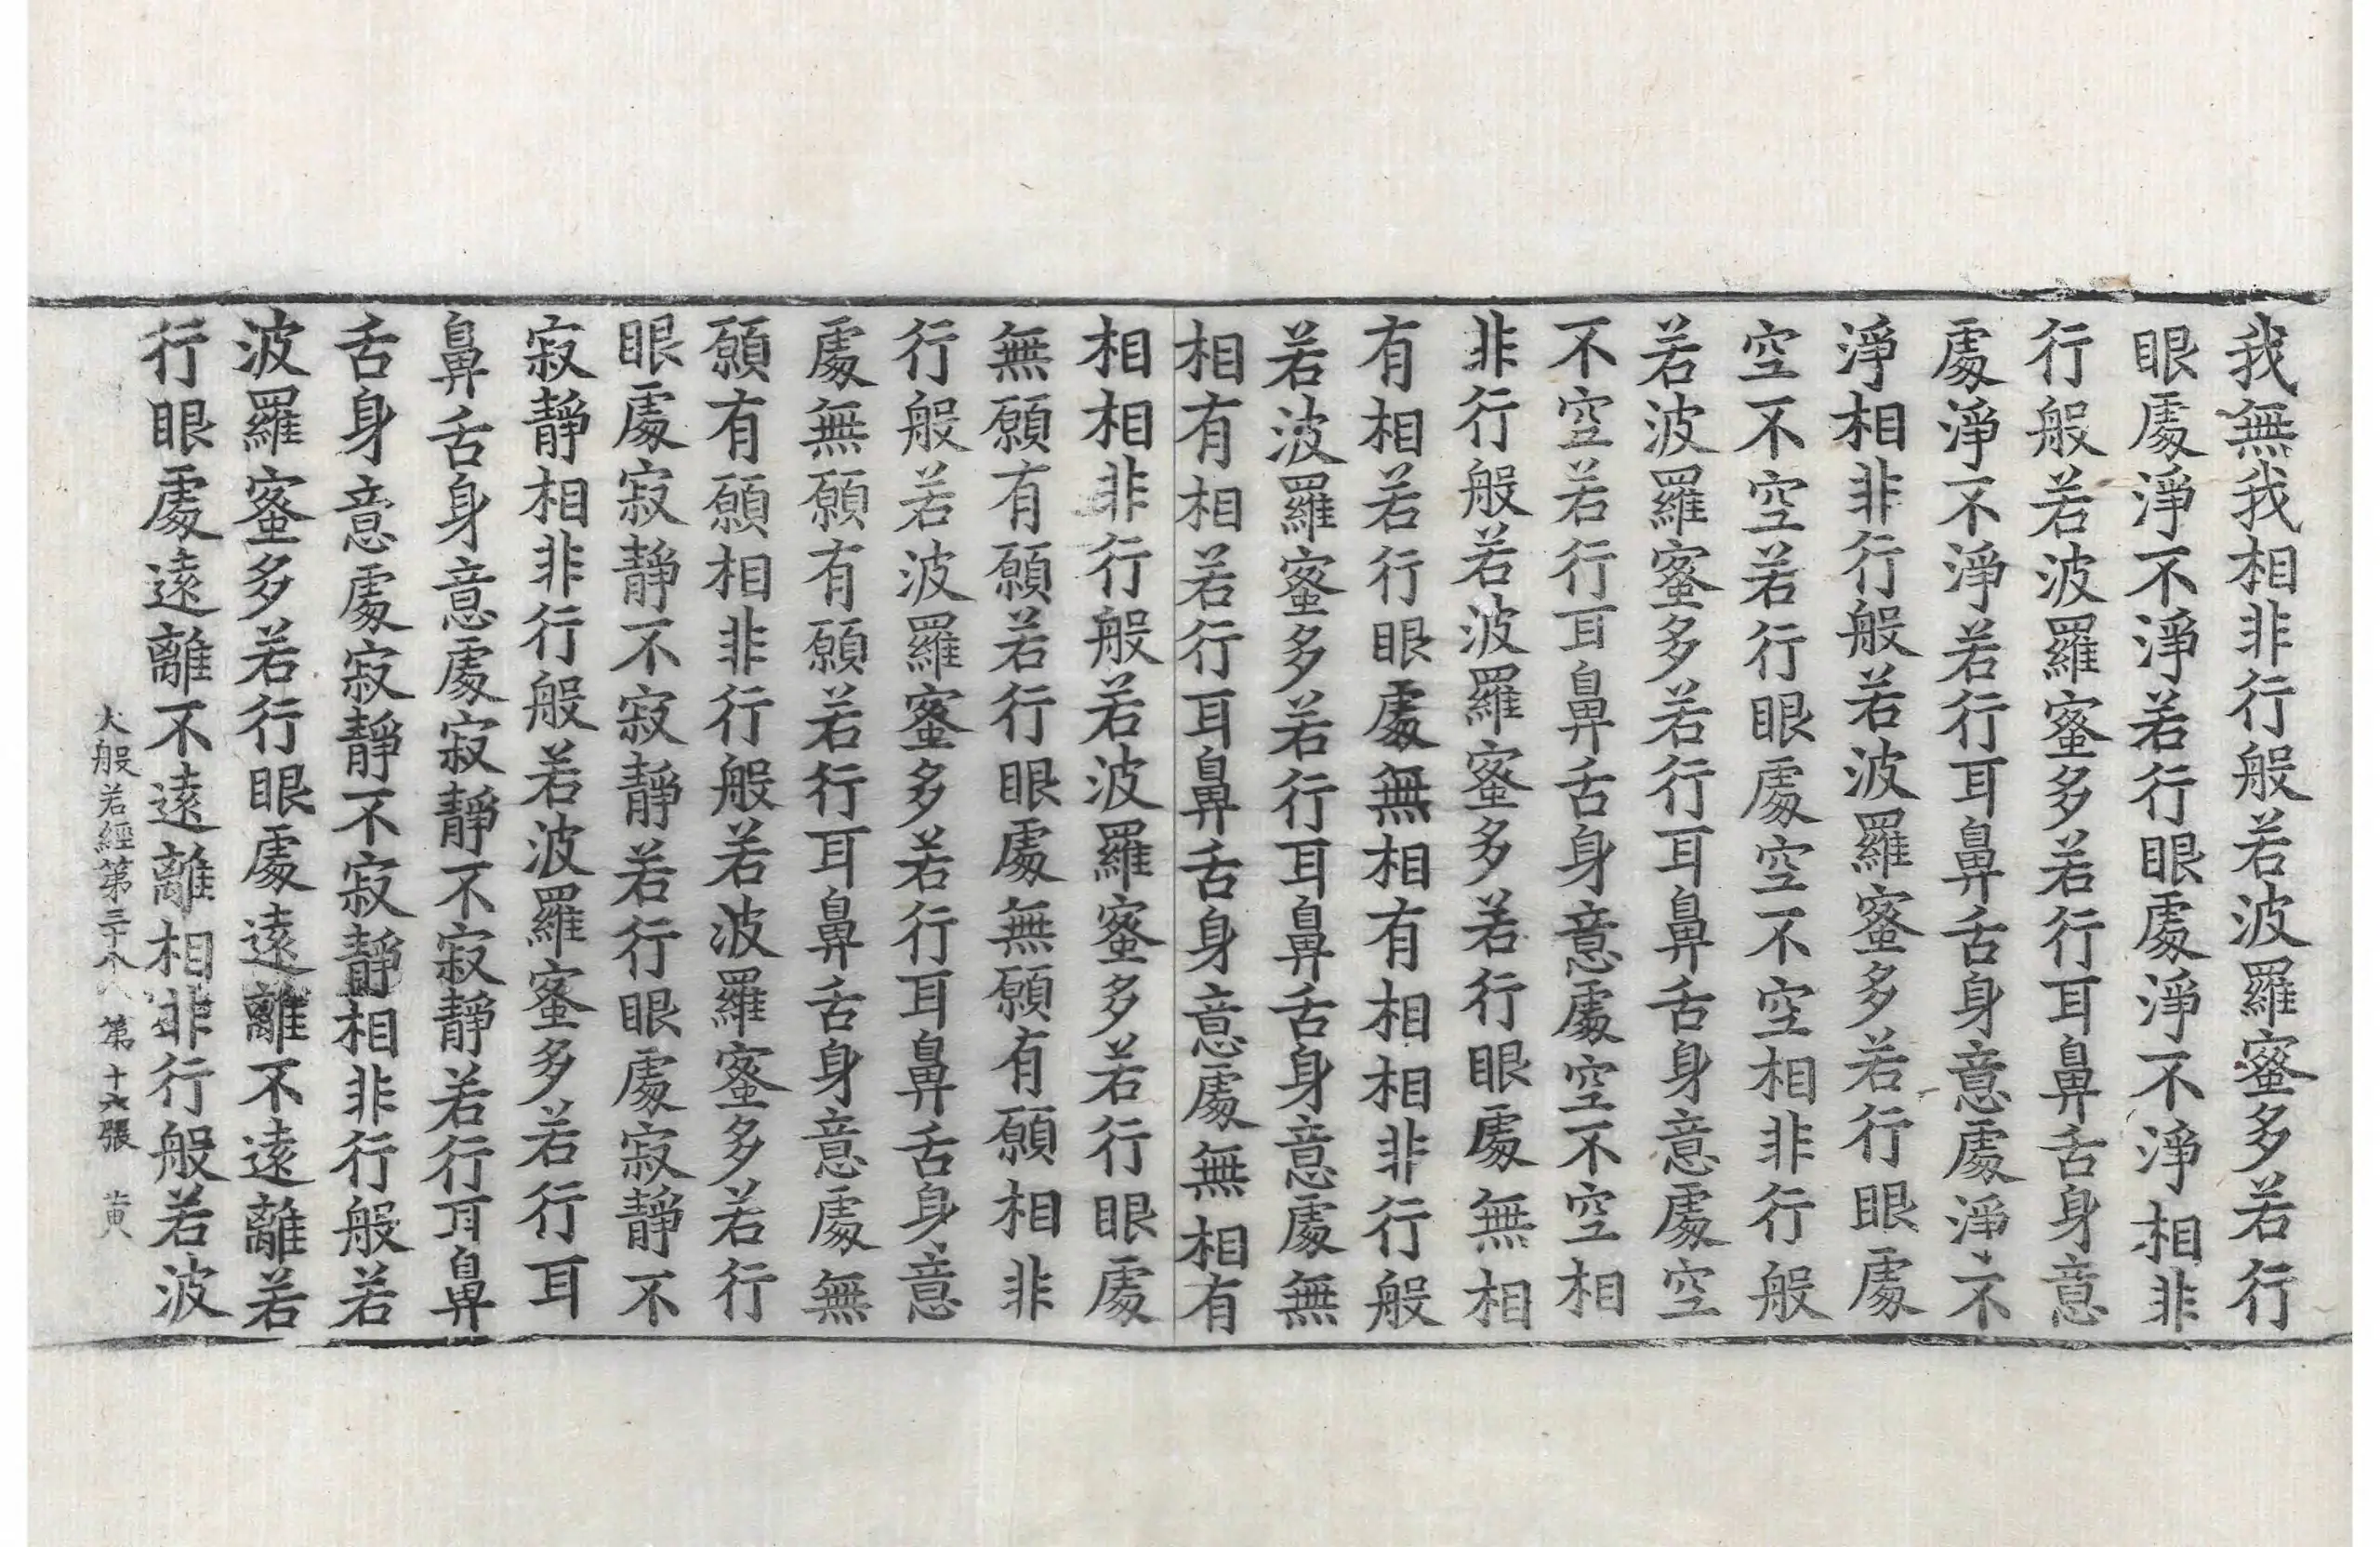 我無我相非行般若波羅蜜多若行
眼處淨不淨若行眼處淨不淨相非
行般若波羅蜜多若行耳鼻舌身意
處淨不淨若行耳鼻舌身意處淨不
淨相非行般若波羅蜜多若行眼處
空不空若行眼處空不空相非行般
若波羅蜜多若行耳鼻舌身意處空
不空若行耳鼻舌身意處空不空相
非行般若波羅蜜多若行眼處無相
有相若行眼處無相有相相非行般
若波羅蜜多若行耳鼻舌身意處無
相有相若行耳鼻舌身意處無相有
相相非行般若波羅蜜多若行眼處
無願有願若行眼處無願有願相非
行般若波羅蜜多若行耳鼻舌身意
處無願有願若行耳鼻舌身意處無
願有願相非行般若波羅蜜多若行
眼處寂靜不寂靜若行眼處寂靜不
寂靜相非行般若波羅蜜多若行耳
鼻舌身意處寂靜不寂靜若行耳鼻
舌身意處寂靜不寂靜相非行般若
波羅蜜多若行眼處遠離不遠離若
行眼處遠離不遠離相非行般若波
大般若經第三十八 第十六張 黃